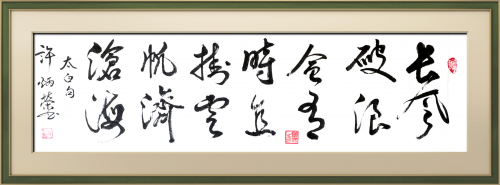 長風
破浪
會有
時直
掛雲
帆濟
滄海
太白句
許炳榮書